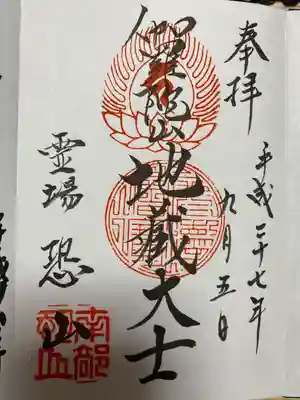 奉拝
平成二十七年
九月五日
伽羅陀山地蔵大士
霊場恐山
南部